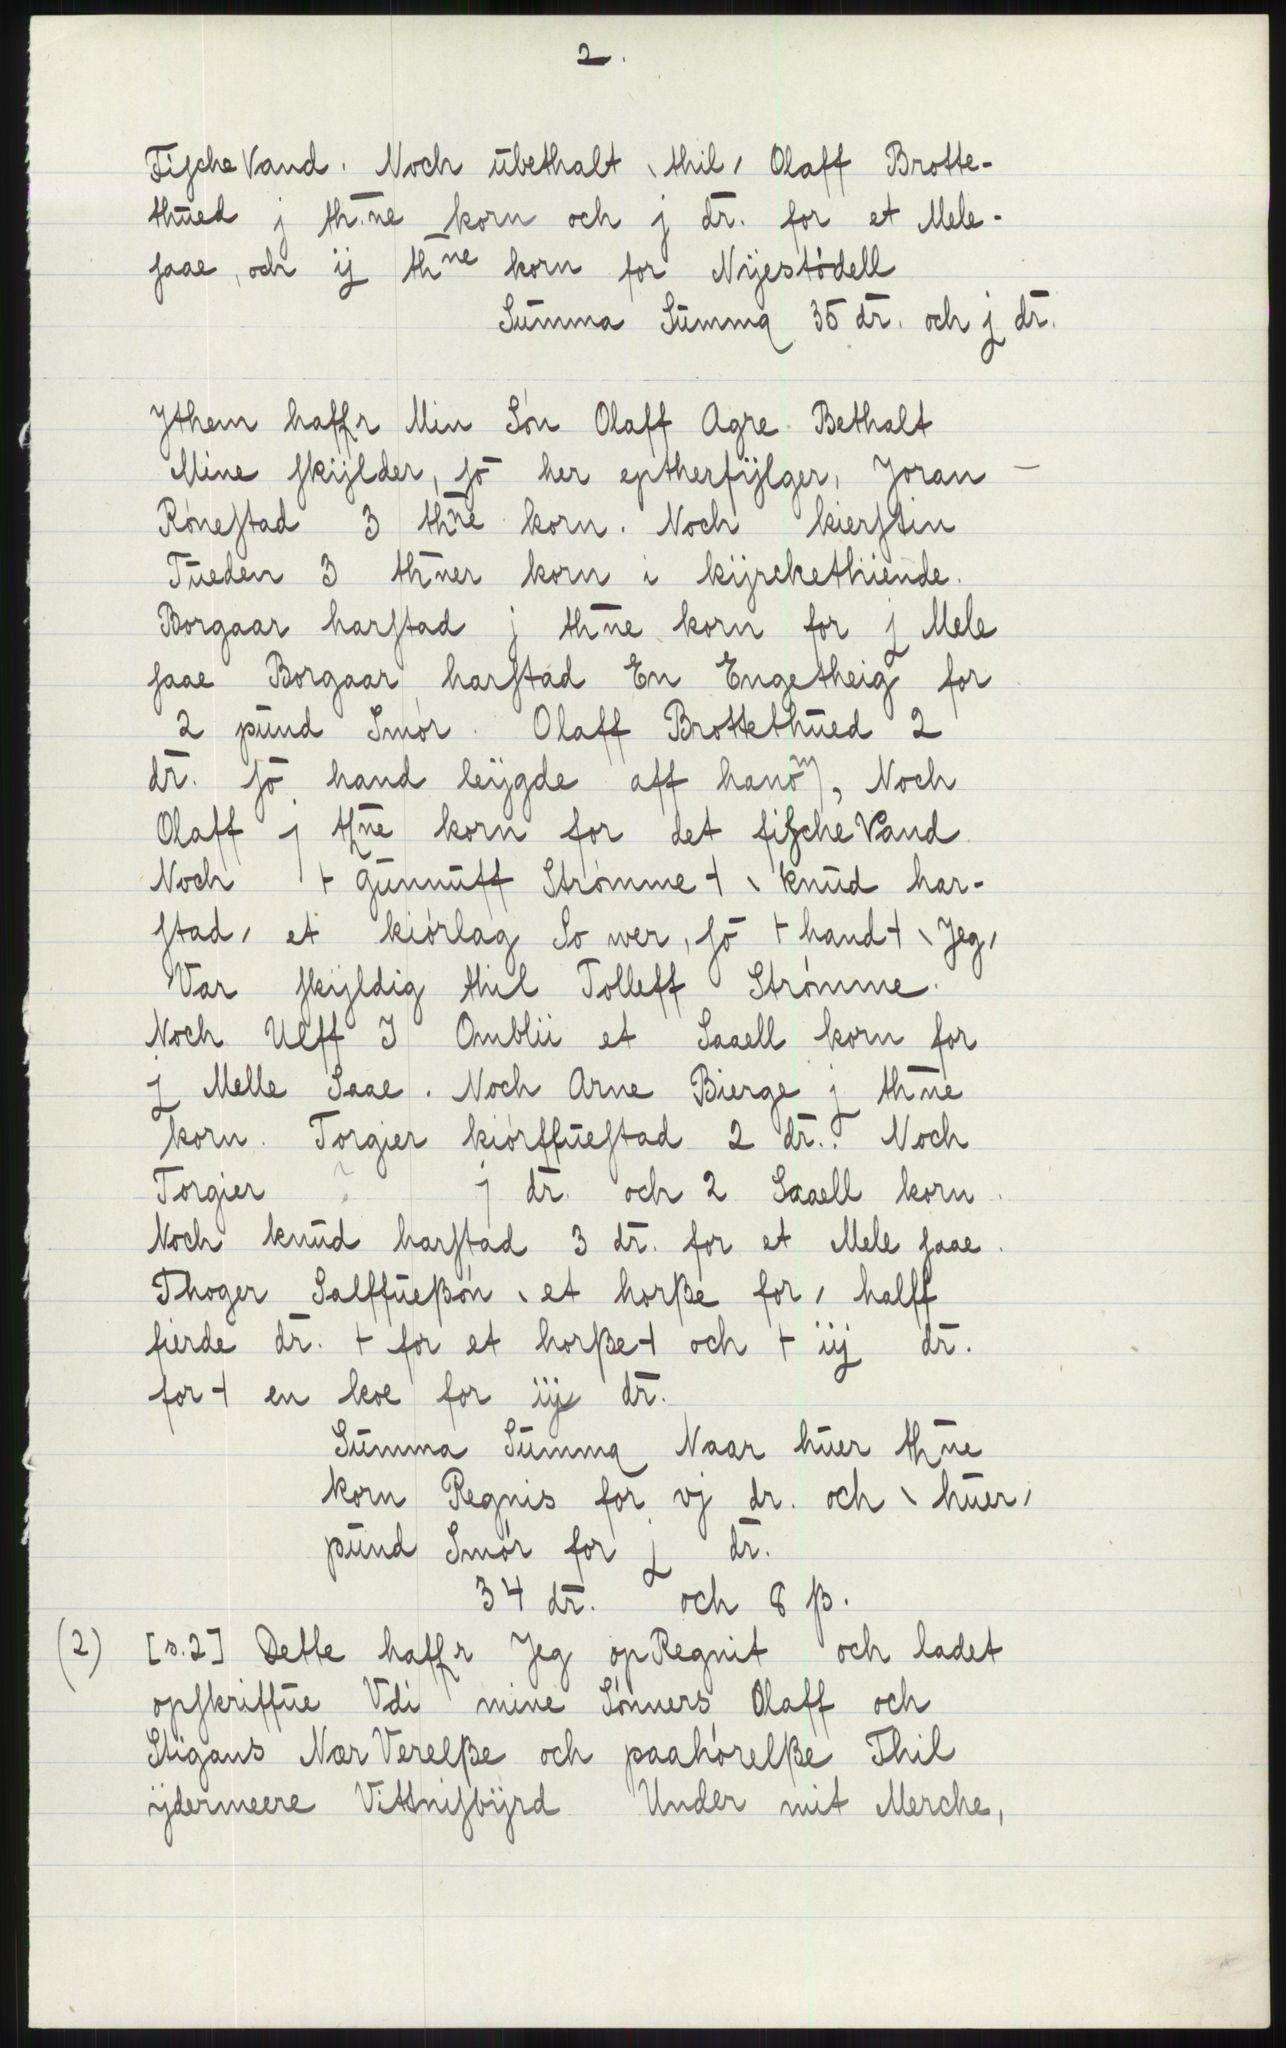 2.
Fische Vand. Noch ūbethalt \ thil / Olaff Brotte-
thūed j th̄ne korn och j dr̄. for et Mele-
saae, och ij th̄ne korn for Nÿestödell
Sūmma Sūmmq 35 dr̄. och j dr̄.
Ythem haffr Min Són Olaff Agre Bethalt
Mine skÿlder, sō her eptherfÿlger, Joran —
Róneſtad 3 th̄ne korn. Noch kierſtin
Tūeden 3 th̄ner korn i kÿrckethiende.
Borgaar harſtad j th̄ne korn for j Mele
ſaae Borgaar harſtad En Engetheig for
2 pūnd Smór. Olaff Brottethūed 2
dr̄. ſō hand leÿgde aff hanom, Noch
Olaff j th̄ne korn for det fiſche Vand
Noch ⊢ Gūnnūff Strómme ⊣ \ knūd har-
ſtad / et kiórlag So wer, ſō ⊢ hand ⊣ \ Jeg /
Var ſkÿldig thil Tolleff Strómme.
Noch Ulff I Omblii et Saaell korn for
j Melle Saae. Noch Arne Bierge j th̄ne
korn. Torgier kiórffūeſtad 2 dr̄.. Noch
Torgier ? j dr̄. och 2 Saaell korn.
Noch knūd harſtad 3 dr̄. for et Mele ſaae.
Thoger Salffūeßón \ et horße for / halff
fierde dr̄. ⊢ for et horße ⊣ och ⊢ iij dr̄.
for ⊣ en koe for iij dr̄.
Sūmma Sūmmq Naar hūer th̄ne
korn Regnis for vj dr. och \ hūer /
pūnd Smór for j dr̄.
34 dr̄. och 8 β.
(2) [s. 2] Dette haffr Jeg opRegnit och ladet
opſkriffūe Vdi mine Sónners Olaff och
Stigans Nær Verelße och paahórelße Thil
ÿdermeere Vittniſbÿrd Under mit Merche,